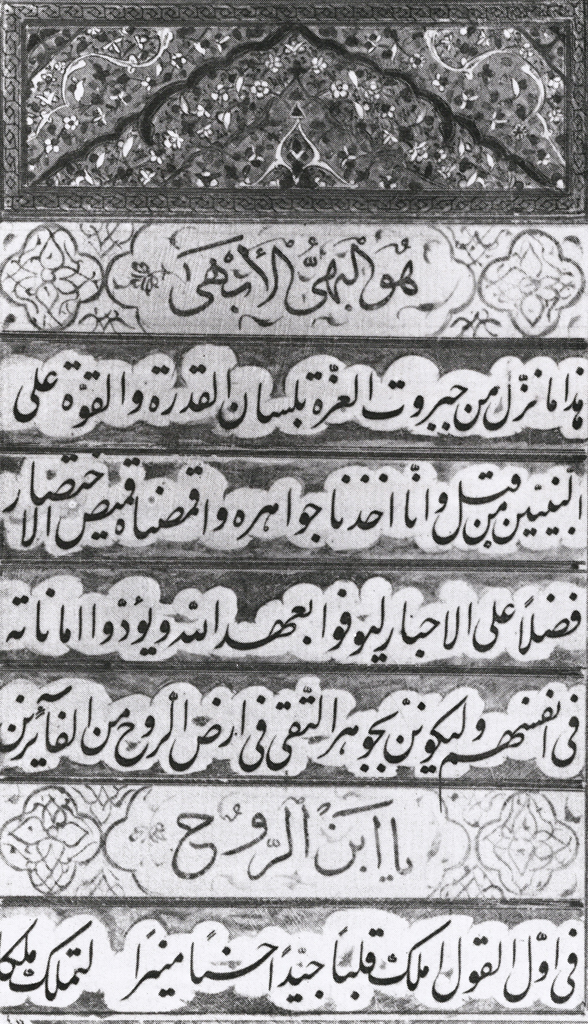 هُو البَهيُّ الأبْهَى
هٰذا ما نزّل من جبروت العزّة بلسان القدرة والقوّة على
النبيّين من قبل وانّا اخذنا جواهره واقمصناه قميص الاختصار
فضلاً على الاحبار ليوفوا بعهد الله ويؤدّوا اماناته
في انفسهم وليكوننّ بجوهر التّقى في ارض الرّوح من الفآئزين
يا ابْنَ الرُّوحِ
في اوّل القول املك قلباً جيّدًا حسنًا منيرًا لتملك ملكا